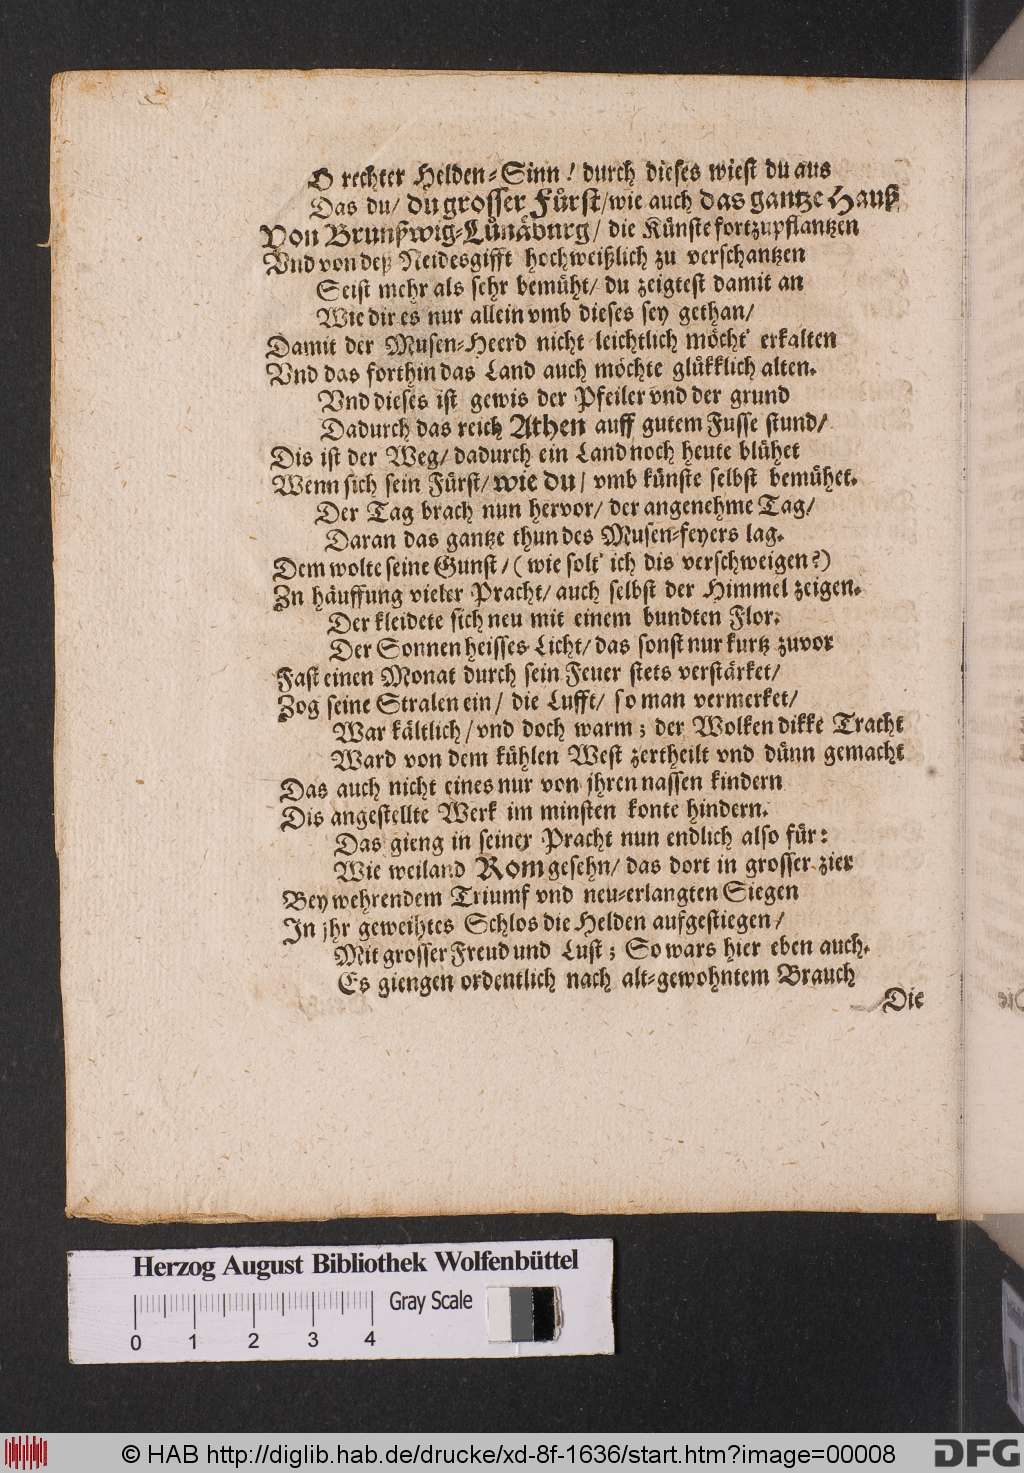 O rechter Helden-Sinn! durch dieses wiest du aus
Das du/ du grosser Fürst/wie auch das gantze Hauß
Von Brunßwig-Lünäburg/ die Künste fortzupflantzen
Vnd von deß Neidesgifft hochweißlich zu verschantzen
Seist mehr als sehr bemüht/ du zeigtest damit an
Wie dir es nur allein vmb dieses sey gethan/
Damit der Musen-Heerd nicht leichtlich möcht' erkalten
Vnd das forthin das Land auch möchte glükklich alten.
Vnd dieses ist gewis der Pfeiler vnd der grund
Dadurch das reich Athen auff gutem Fusse stund/
Dis ist der Weg/ dadurch ein Land noch heute blühet
Wenn sich sein Fürst/ wie du/ vmb künste selbst bemühet.
Der Tag brach nun hervor/ der angenehme Tag/
Daran das gantze thun des Musen-feyers lag.
Dem wolte seine Gunst/ (wie solt' ich dis verschweigen?)
Zn häuffung vieler Pracht/ auch selbst der Himmel zeigen.
Der kleidete sich neu mit einem bundten Flor.
Der Sonnen heisses Licht/ das sonst nur kurtz zuvor
Fast einen Monat durch sein Feuer stets verstärket/
Zog seine Stralen ein/ die Lufft/ so man vermerket/
War kältlich/ vnd doch warm; der Wolken dikke Tracht
Ward von dem kühlen West zertheilt vnd dünn gemacht
Das auch nicht eines nur von jhren nassen kindern
Dis angestellte Werk im minsten konte hindern.
Das gieng in seiner Pracht nun endlich also für:
Wie weiland Rom gesehn/ das dort in grosser zier
Bey wehrendem Triumf vnd neu-erlangten Siegen
In jhr geweihtes Schlos die Helden aufgestiegen/
Mit grosser Freud und Lust; So wars hier eben auch.
Es giengen ordentlich nach alt-gewohntem Brauch
Die
Herzog August Bibliothek Wolfenbüttel
Gray Scale
0 1 2 3 4
© HAB http://diglib.hab.de/drucke/xd-8f-1636/start.htm?image=00008
DFG